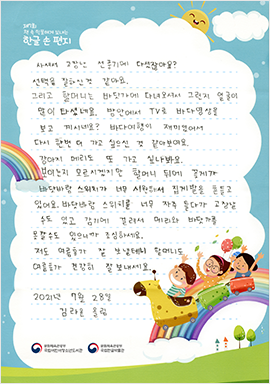 제7회
한글 손 편지
사서서 고장난 선풍기에 다셨잖아요?
선택을 잘하신 것 같아요.
그리고 할머니는 바닷가에 다녀오셔서 그런지 얼굴이
많이 타셨네요. 방안에서 TV로 바다영상을
보고 계시네요? 바다여행이 재미있어서
다시 한번 더 가고 싶으신 것 같아보여요.
강아지 메리도 또 가고 싶나봐요.
보이는지 모르시겠지만 할머니 뒤에 꽃게가
바닷바람 스위치가 너무 시원해서 집게발을 흔들고
있어요. 바닷바람 스위치를 너무 자주 틀다가 고장날
수도 있고 감기에 걸려서 메리와 바닷가를
못갈수도 있으니까 조심하세요.
저도 여름휴가 잘 보낼테니 할머니도
여름휴가 건강히 잘 보내세요.
2021년 7월 28일
김라온 올림
문화체육관광부
국립어린이청소년도서관
문화체육관광부
국립한글박물관